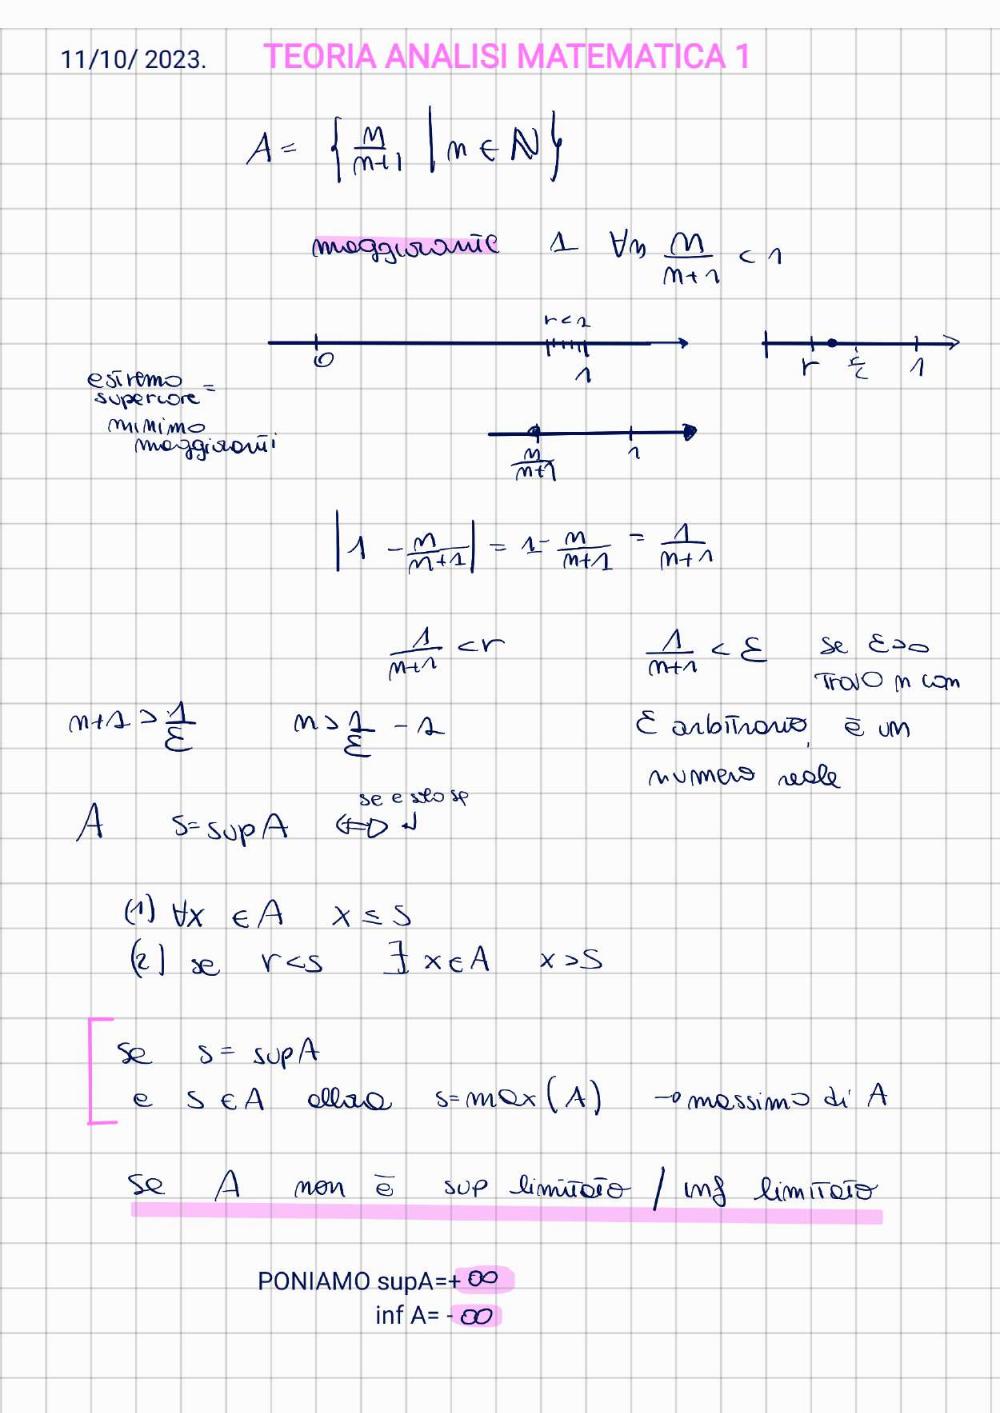 11/10/ 2023. TEORIA ANALISI MATEMATICA 1
A = { n/n+1 | n ∈ ℕ }
maggiorante 1 ∀n n/n+1 < 1
r<1
0 1 r 1
estremo =
superiore
minimo
maggioranti
n/n+1 1
|1 - n/n+1| = 1 - n/n+1 = 1/n+1
1/n+1 < r 1/n+1 < ε se ε>0
trovo n con
n+1 > 1/ε n > 1/ε - 1 ε arbitrario, è un
numero reale
se e solo se
A s = sup A ⇔
(1) ∀x ∈ A x ≤ s
(2) se r<s ∃ x∈A x>s
se s = sup A
e s ∈ A allora s = max(A) → massimo di A
se A non è sup limitato / inf limitato
PONIAMO supA=+ ∞
inf A= - ∞